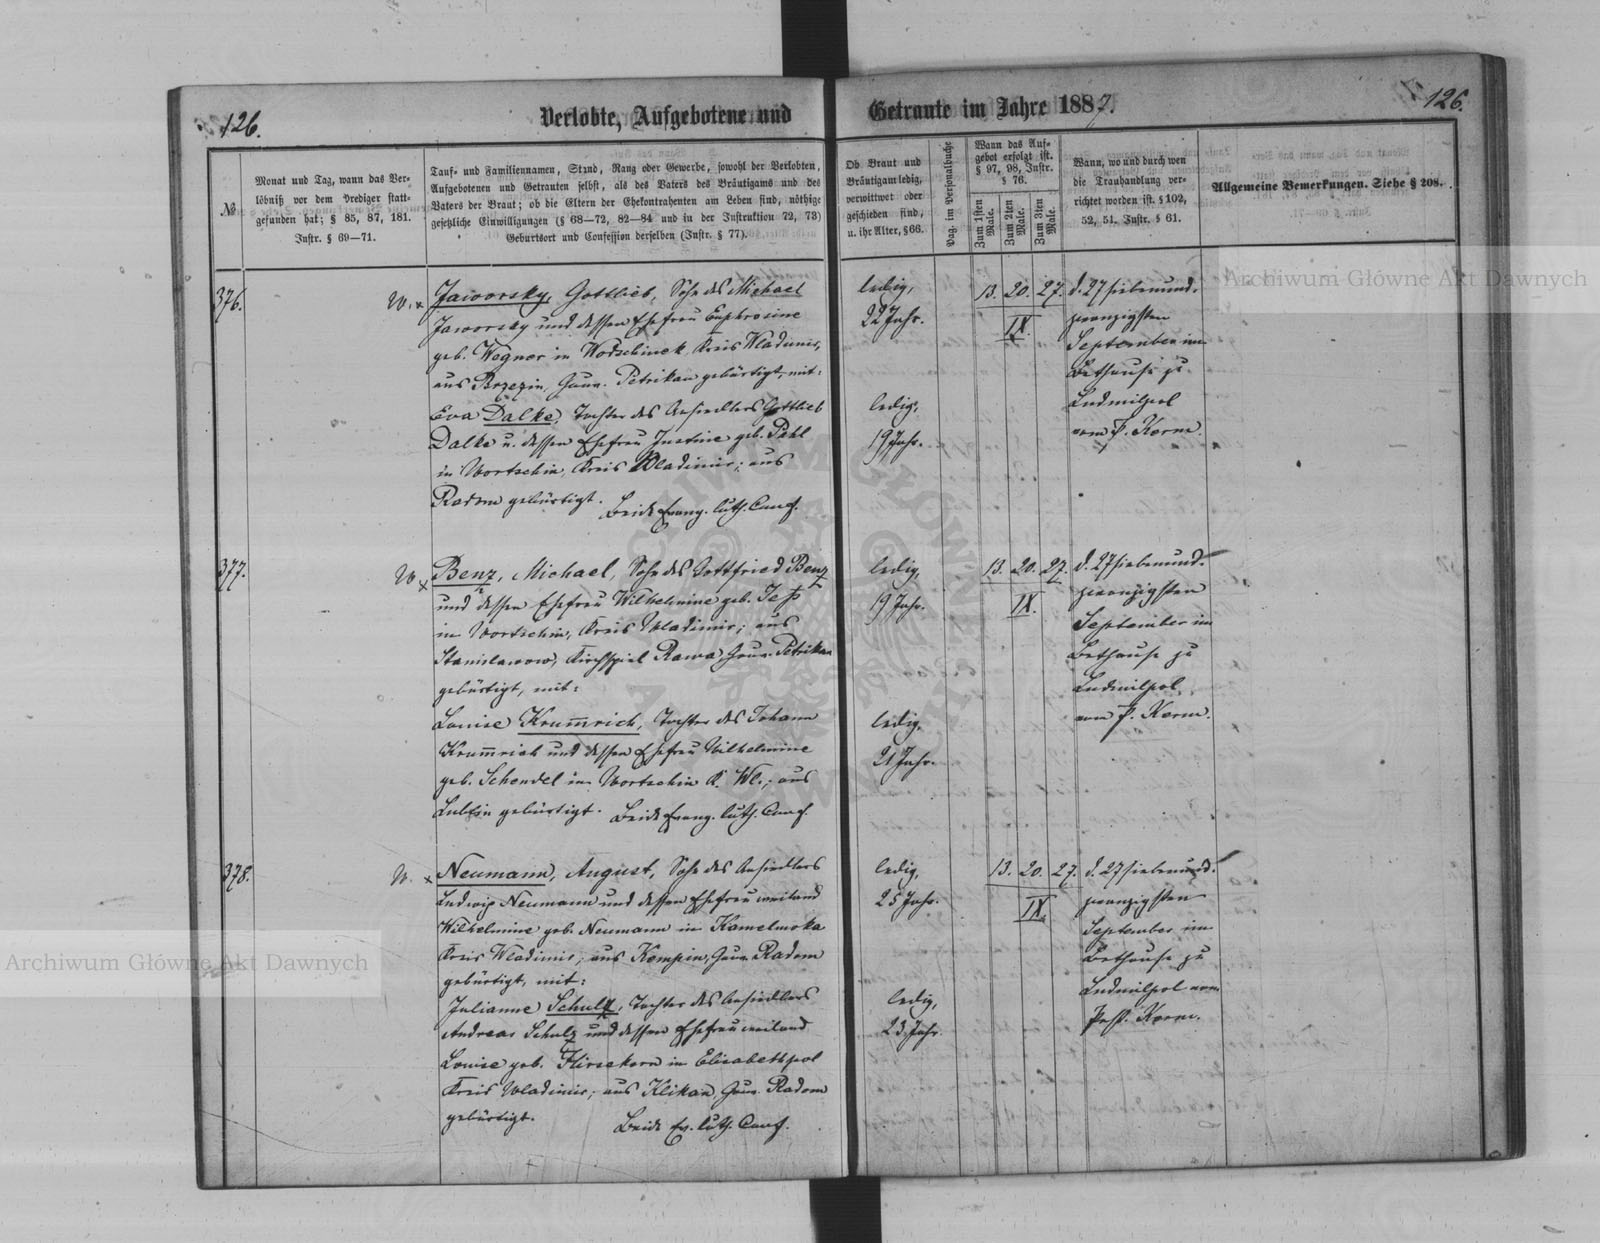 126.
Verlobte, Aufgebotene und
Getraute im Jahre 1887.
126.
№
Monat und Tag, wann das Ver-
löbniß vor dem Prediger statt-
gefunden hat; § 85, 87, 181.
Instr. § 69—71.
Tauf- und Familiennamen, Stand, Rang oder Gewerbe, sowohl der Verlobten,
Aufgebotenen und Getrauten selbst, als des Vaters des Bräutigams und des
Vaters der Braut; ob die Eltern der Ehekontrahenten am Leben sind, nöthige
gesetzliche Einwilligungen (§ 68—72, 82—84 und in der Instruktion 72, 73)
Geburtsort und Confession derselben (Instr. § 77).
Ob Braut und
Bräutigam ledig,
verwittwet oder
geschieden sind,
u. ihr Alter, § 66.
Pag. im Personalbuche
Wann das Auf-
gebot erfolgt ist.
§ 97, 98, Instr.
§ 76.
Zum 1sten Male.
Zum 2ten Male.
Zum 3ten Male.
Wann, wo und durch wen
die Trauhandlung ver-
richtet worden ist. § 102,
52, 51. Instr. § 61.
Allgemeine Bemerkungen. Siehe § 208.
376.
W. x
Jaworsky, Gottlieb, Sohn des Michael
Jaworsky und dessen Ehefrau Euphrosine
geb. Wegner in Wodschinek, Kreis Wladimir,
aus Brzezin, Gouv. Petrikau gebürtigt, mit:
Eva Dalke, Tochter des Ansiedlers Gottlieb
Dalke u. dessen Ehefrau Justine geb. Pahl
in Wortschin, Kreis Wladimir; aus
Radom gebürtigt.
Beide Evang. luth. Conf.
ledig,
22 Jahr.
ledig,
19 Jahr.
13. 20. 27.
IX.
d. 27 siebenund-
zwanzigsten
September im
Bethause zu
Ludmilpol
vom P. Kerm.
377.
W x
Benz, Michael, Sohn des Gottfried Benz
und dessen Ehefrau Wilhelmine geb. Jeß
in Wortschin, Kreis Wladimir; aus
Stanislawow, Kirchspiel Rawa Gouv. Petrikau
gebürtigt, mit:
Louise Krum̅rich, Tochter des Johann
Krum̅rich und dessen Ehefrau Wilhelmine
geb. Schendel in Wortschin K. Wl., aus
Lublin gebürtigt.
Beide Evang. luth. Conf.
ledig,
19 Jahr.
ledig,
21 Jahr.
13. 20. 27.
IX.
d. 27 siebenund-
zwanzigsten
September im
Bethause zu
Ludmilpol,
vom P. Kerm.
378.
W. x
Neumann, August, Sohn des Ansiedlers
Ludwig Neumann und dessen Ehefrau weiland
Wilhelmine geb. Neumann in Kamelwoka
Kreis Wladimir; aus Kempin, Gouv. Radom
gebürtigt, mit:
Julianne Schulz, Tochter des Ansiedlers
Andreas Schulz und dessen Ehefrau weiland
Louise geb. Hirsekorn in Elisabethpol
Kreis Wladimir; aus Klikau Gouv. Radom
gebürtigt.
Beide Ev. luth. Conf.
ledig,
25 Jahr.
ledig,
23 Jahr.
13. 20. 27.
IX.
d. 27 siebenund-
zwanzigsten
September im
Bethause zu
Ludmilpol vom
Past. Kerm.
Archiwum Główne Akt Dawnych
Archiwum Główne Akt Dawnych